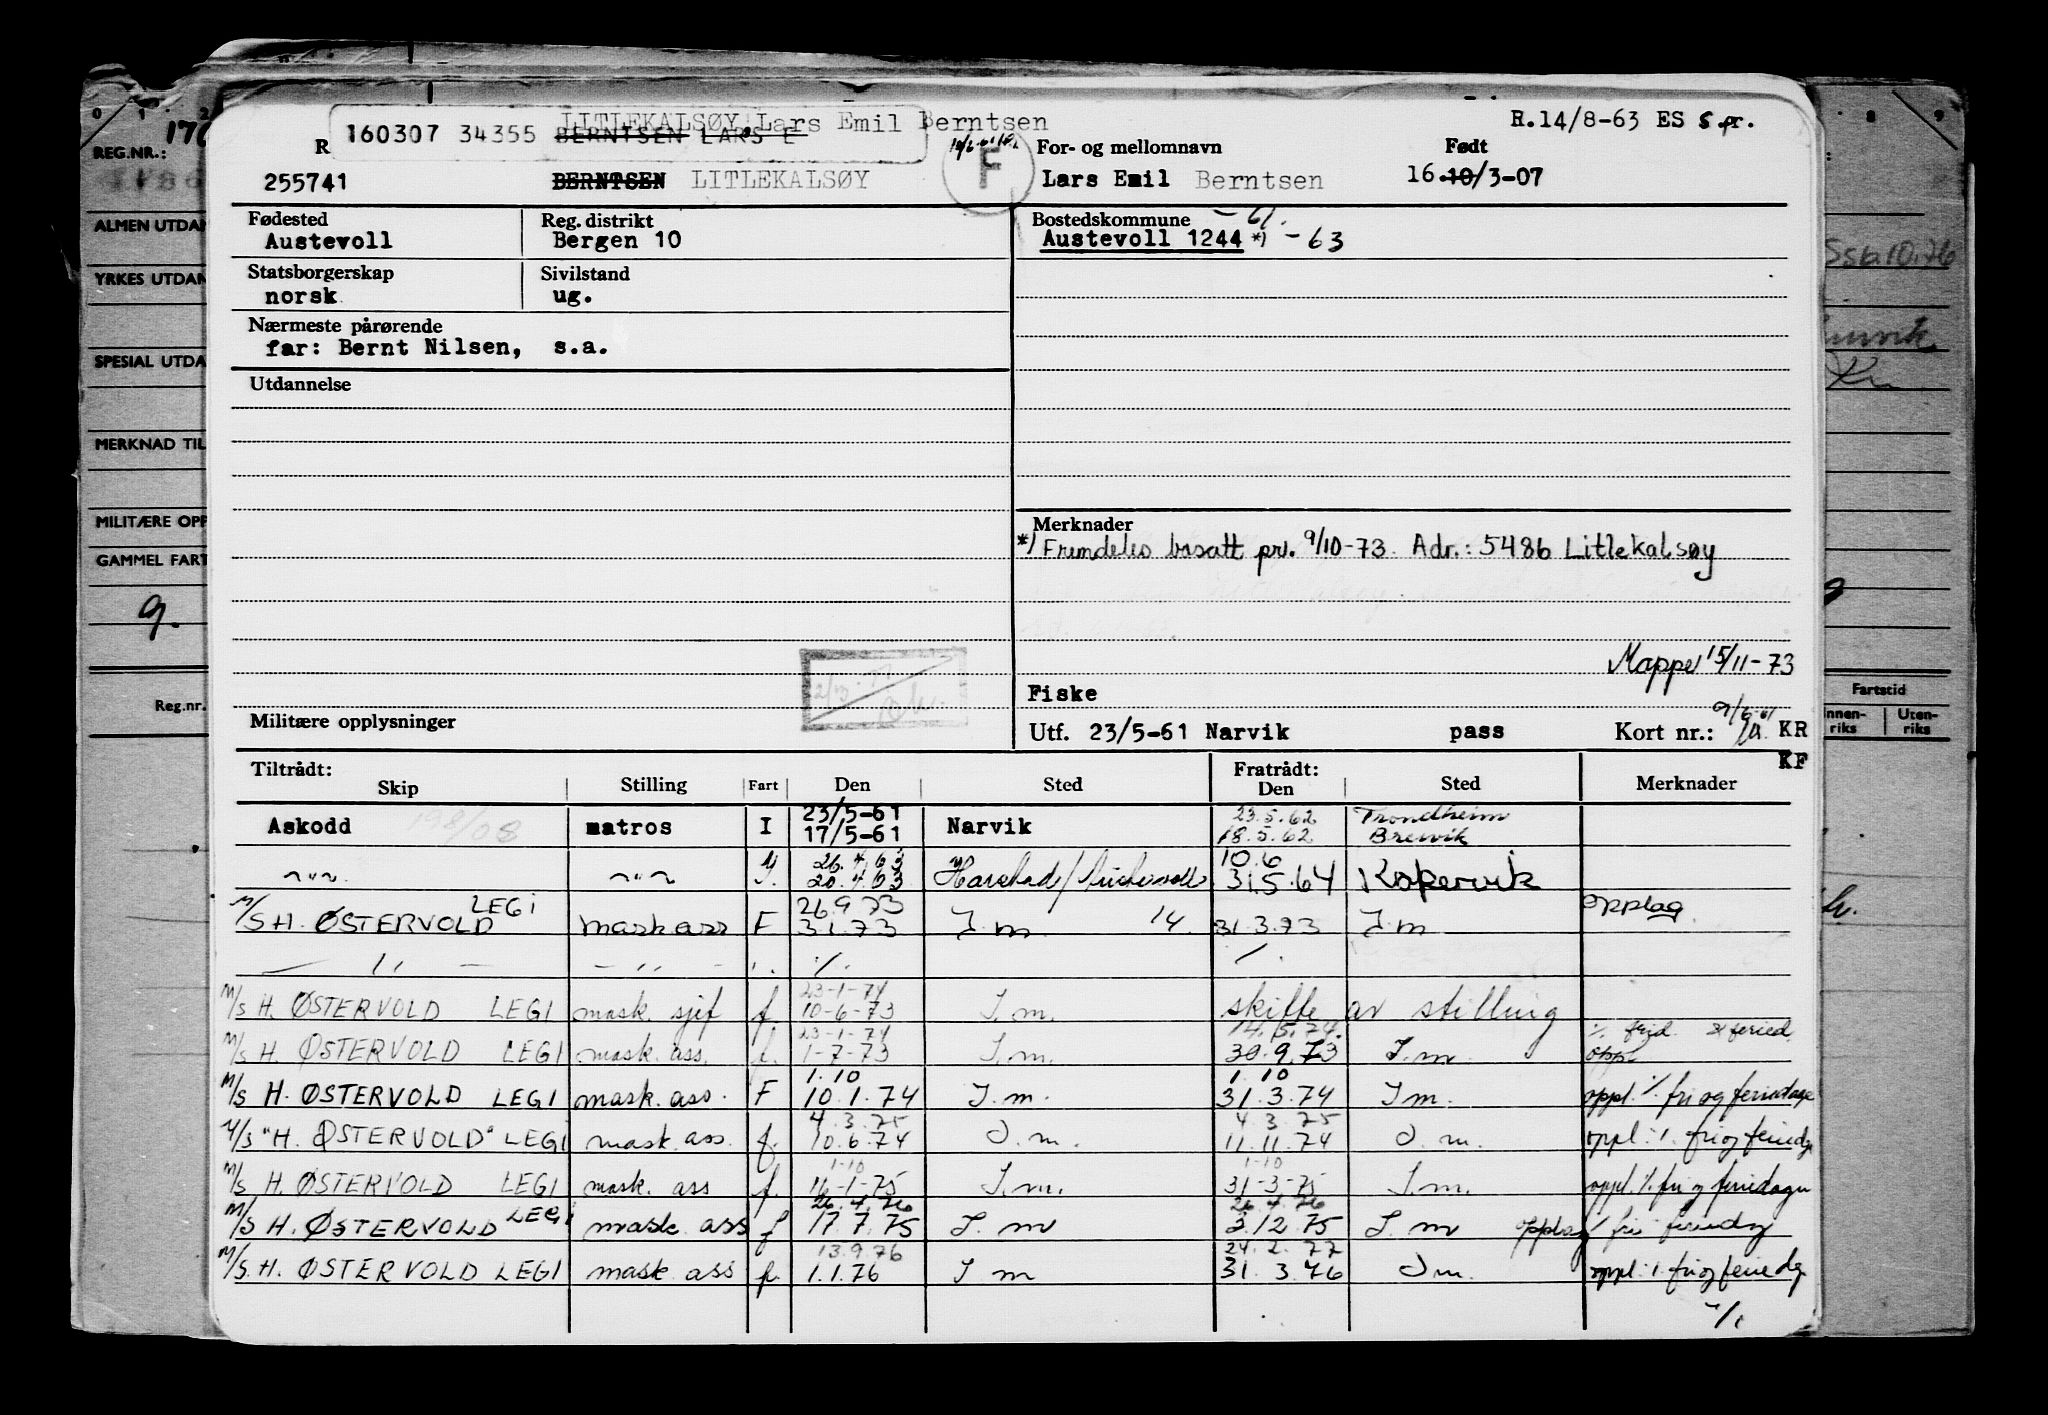 LITLEKALSØY Lars Emil Berntsen
R.14/8-63 ES 5 pr.
160307 34355 BERNTSEN LARS E
R
F
For- og mellomnavn
Født
255741
BERNTSEN LITLEKALSØY
Lars Emil Berntsen
16.10/3-07
Fødested
Austevoll
Reg. distrikt
Bergen 10
Bostedskommune -61.
Austevoll 1244 *) -63
Statsborgerskap
norsk
Sivilstand
ug.
Nærmeste pårørende
far: Bernt Nilsen, s.a.
Utdannelse
Merknader
*) Fremdeles bosatt pr. 9/10-73. Adr.: 5486 Litlekalsøy
Mappe 15/11-73
Fiske
Militære opplysninger
Utf. 23/5-61 Narvik pass Kort nr.: KR
KF
Tiltrådt:
Skip Stilling Fart Den Sted
Fratrådt:
Den Sted Merknader
23/5-61 23.5.62 Trondheim
Askodd 198/08 matros I 17/5-61 Narvik 18.5.62 Brevik
26.4.63 10.6
-"- -"- I. 20.4.63 Harstad/ 31.5.64 Kopervik
M/S H. ØSTERVOLD LEGI mask ass F 26.9.73 3.1.73 I.m. 14. 31.3.73 I.m opplag
— " — — " — ". ./. ./.
23-1-74
M/S H. ØSTERVOLD LEGI mask. sjef f. 10-6-73 I.m. skifte av stilling
23-1-74 14.5.74. ./. frid. & feried.
M/S H. ØSTERVOLD LEGI mask. ass. f. 1-7-73 I.m. 30.9.73 I.m. oppl
1.10 1.10
M/S H. ØSTERVOLD LEGI mask. ass. F 10.1.74 I.m. 31.3.74 I.m. oppl. ./. fri og feriedage
4.3.75 4.3.75
M/S "H. ØSTERVOLD" LEGI mask. ass. f. 10.6.74 I.m. 11.11.74 I.m. oppl. ./. fri og feriedg
1-10 1-10
M/S H. ØSTERVOLD LEGI mask. ass f. 16-1-75 I.m. 31-3-75 I.m. oppl. ./. fri og feriedager
26.4.76 26.4.76
M/S H. ØSTERVOLD LEGI mask. ass f 17.7.75 I.m 3.12.75 I.m opplag ./. fri feriedag
13.9.76 24.2.77
M/S. H. ØSTERVOLD LEGI mask ass f. 1.1.76 I.m 31.3.76 I.m. oppl. ./. fri og feriedg
./.
0 1 2
REG.NR.:
ALMEN UTDAN
YRKES UTDAN
SPESIAL UTDA
MERKNAD TIL
MILITÆRE OPP
GAMMEL FART
9.
Reg.nr.
8 9
10.76
Fartstid
Innen-
riks
Uten-
riks